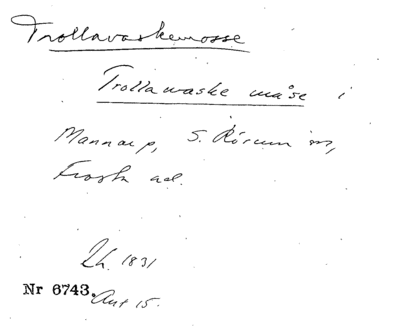 Trollavaskemosse
Trollawaske måse i
Mannarp, S. Rörum sn,
Frosta hd.
Lh. 1831
Nr 6743. Ant 15.